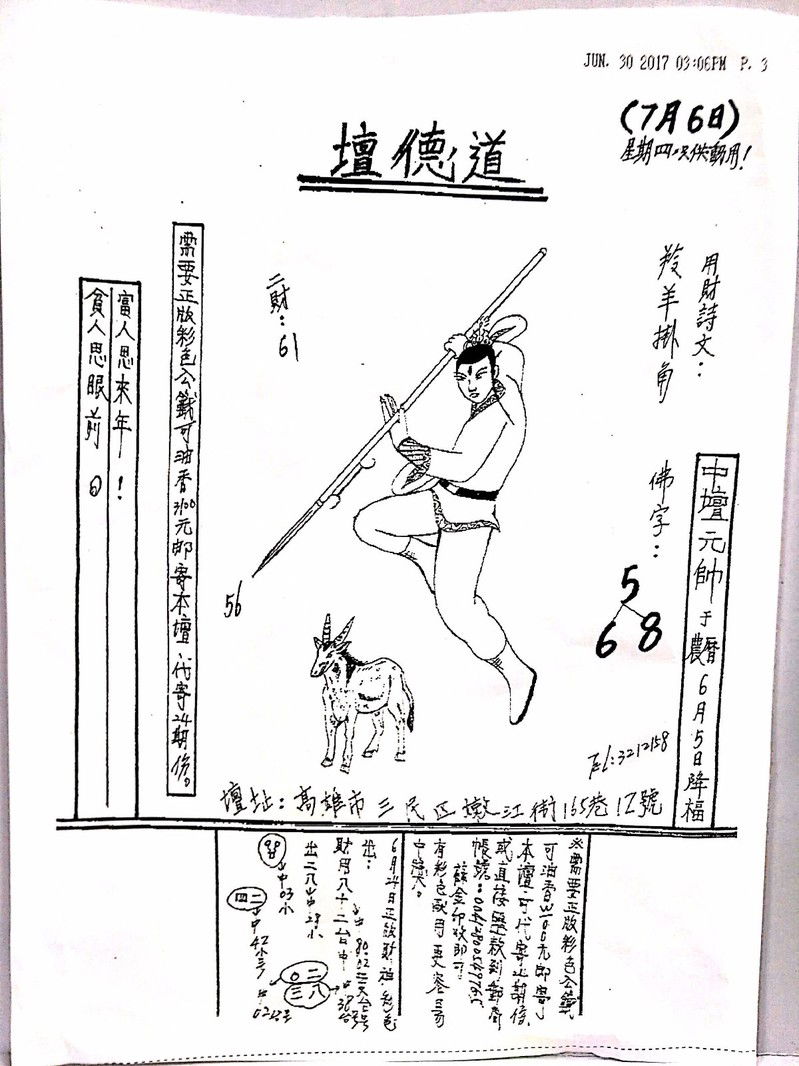 JUN. 30 2017 03:06PM P. 3
(7月6日)
星期四只供動用!
道德壇
用財詩文:
羚羊掛角
佛字:
5
6 8
中壇元帥于農曆6月5日降福
二財:61
56
需要正版彩色公籤可油香3100元郵寄本壇、代寄24期份。
富人思來年!
貧人思眼前。
Tel:3212158
壇址:高雄市三民区墩江街165巷12號
※需要正版彩色公籤
可油香3100元郵寄
本壇、可代寄24期份、
或直接匯款到郵局
有彩色敢用更容易
中獎。
6月24日正版財神彩色
出:
財用八十二台中
出二八中28小
中03小
二四
中42小
二〇
八三